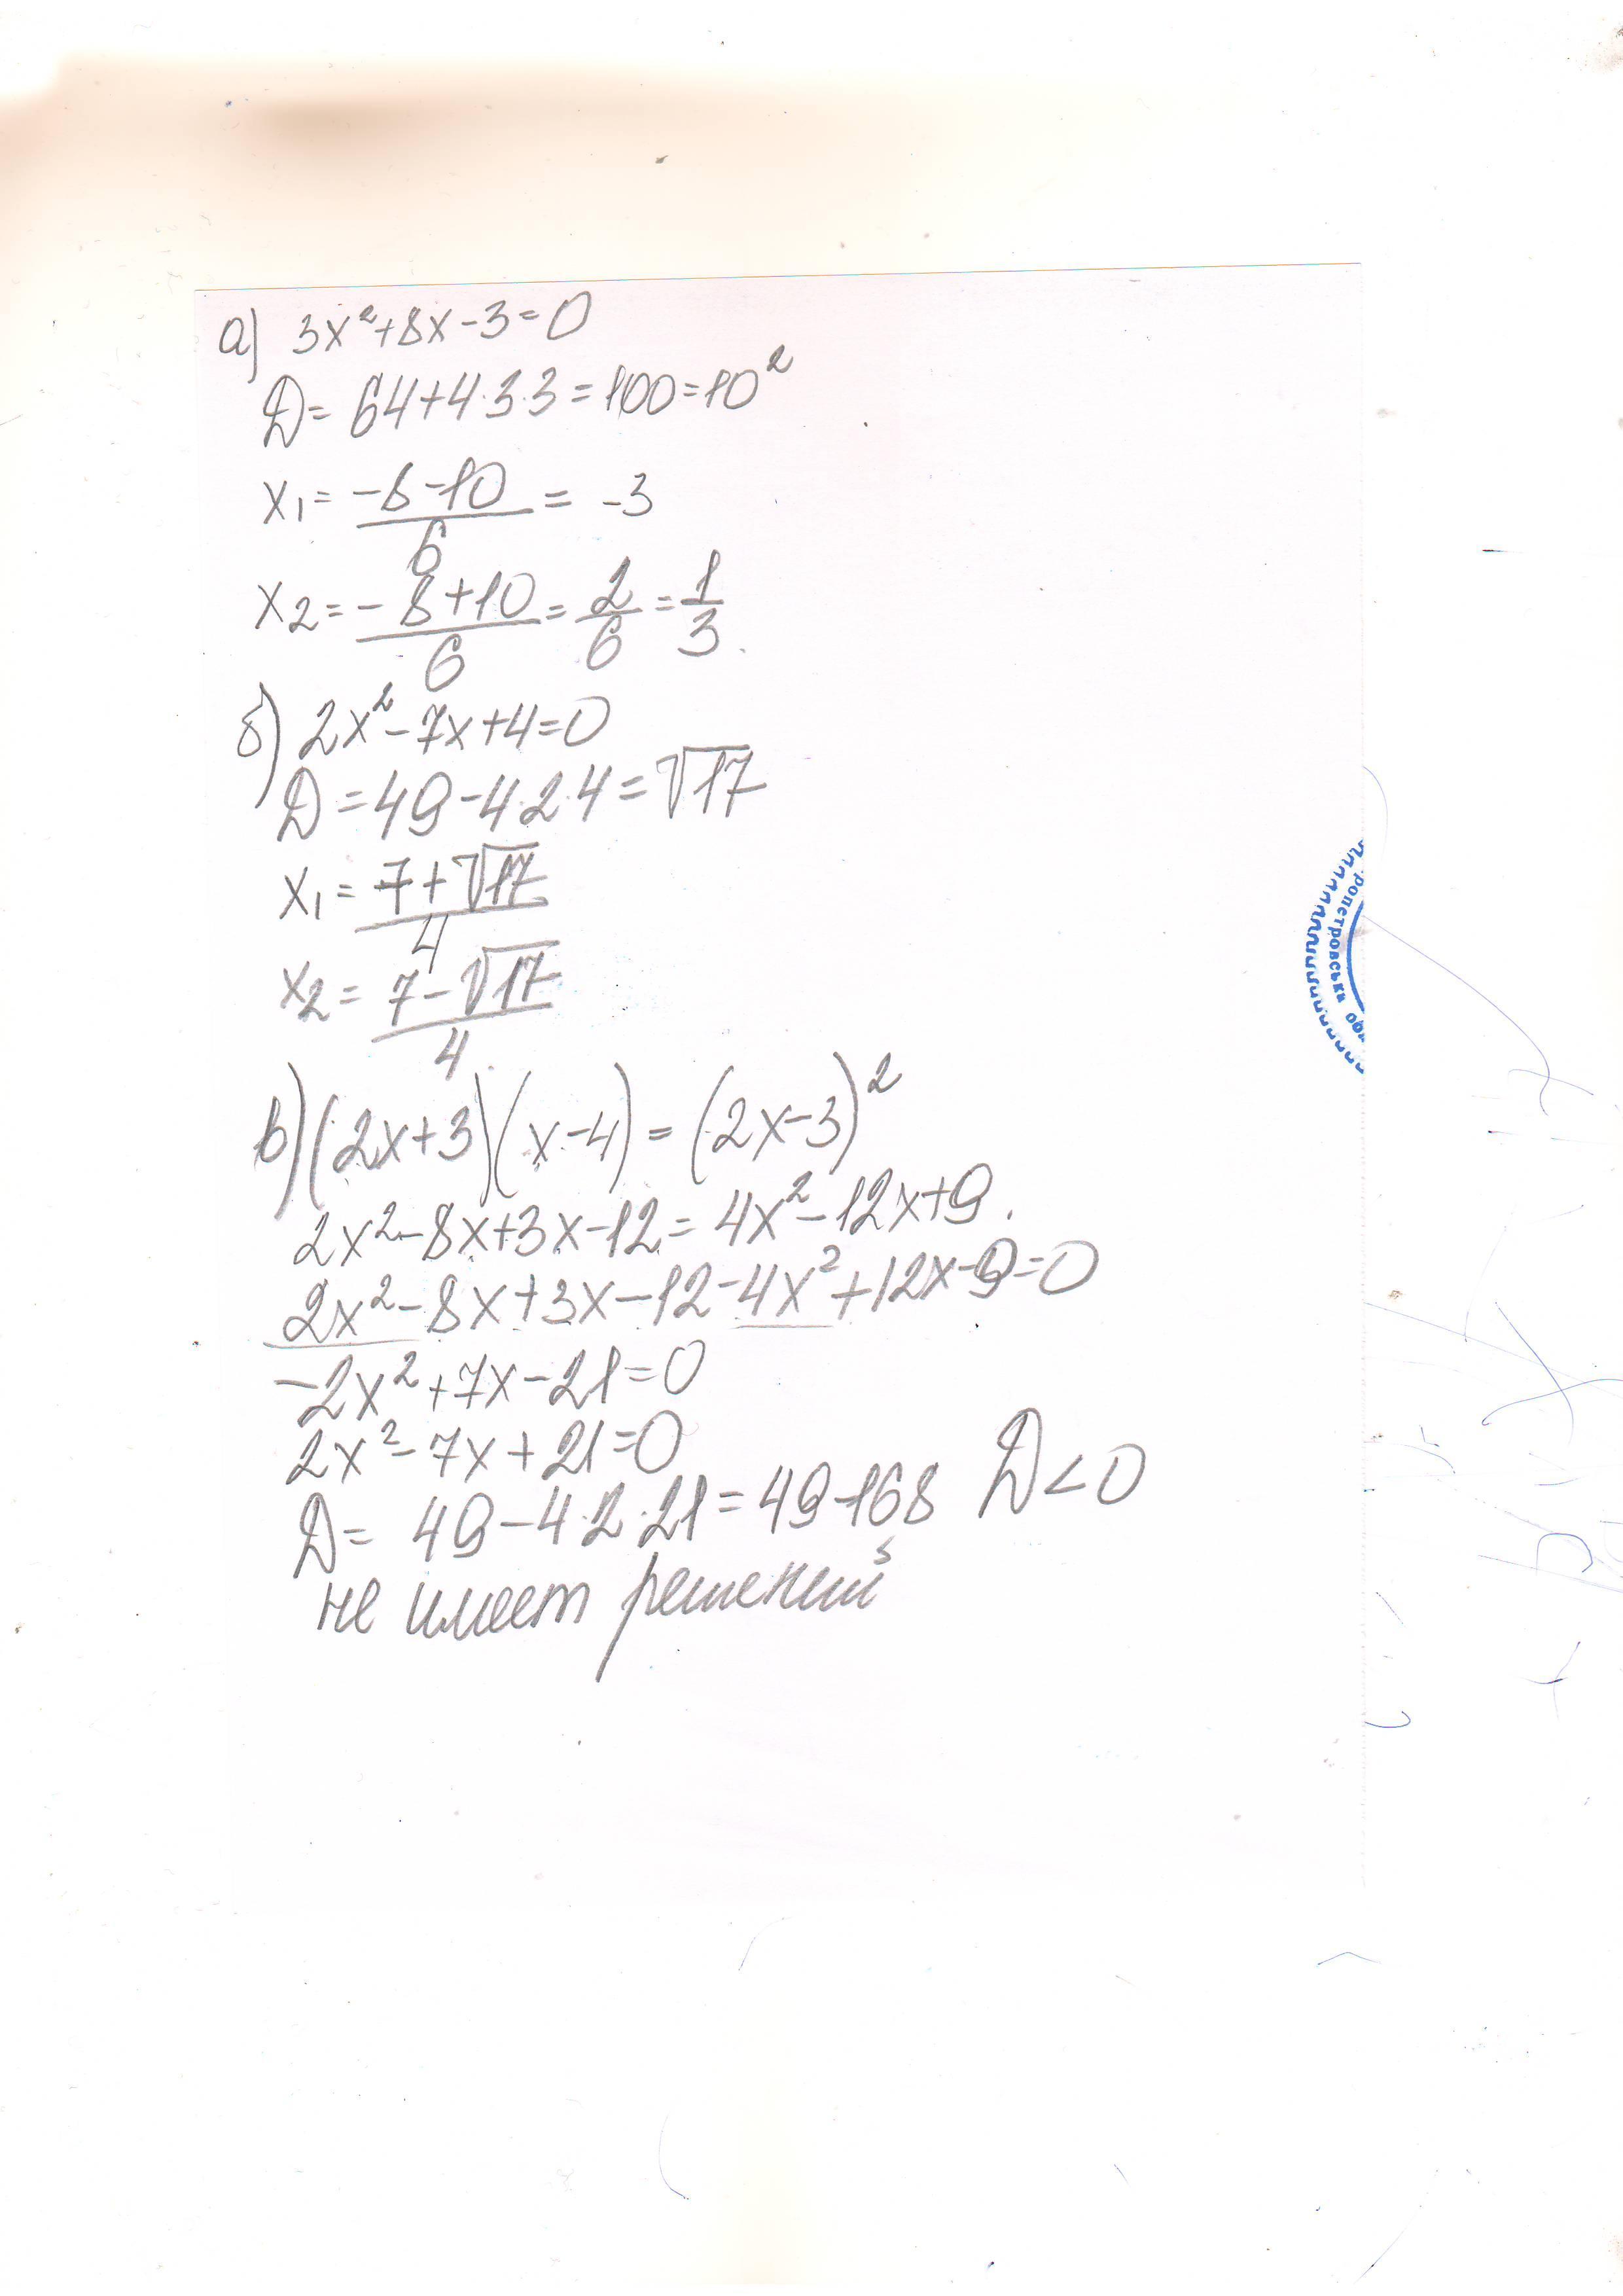 а) 3x²+8x-3=0
D= 64+4·3·3=100=10²
x₁= -8-10/6 = -3
x₂= -8+10/6 = 2/6 = 1/3.
б) 2x²-7x+4=0
D=49-4·2·4=√17
x₁= 7+√17/4
x₂= 7-√17/4.
в) (2x+3)(x-4)=(2x-3)²
2x²-8x+3x-12=4x²-12x+9.
2x²-8x+3x-12-4x²+12x-9=0
-2x²+7x-21=0
2x²-7x+21=0
D= 49-4·2·21=49-168 D<0
не имеет решений
ропетровська